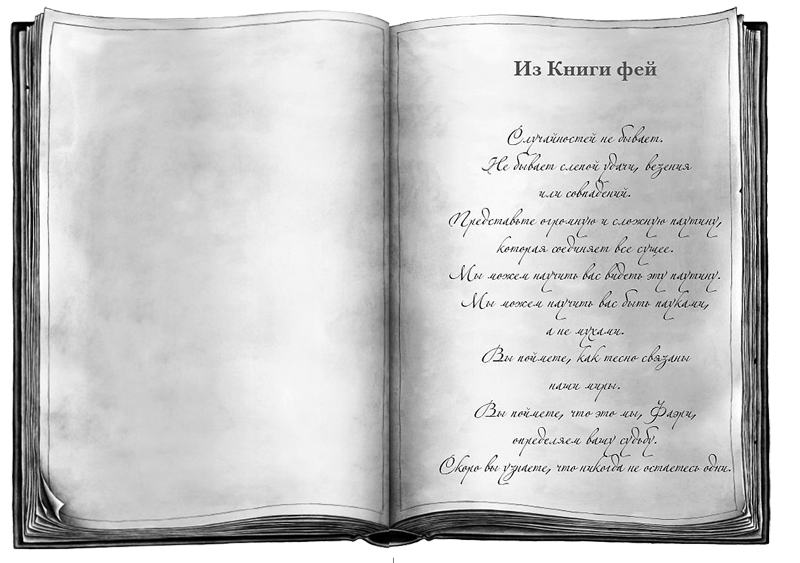 Из Книги фей
Случайностей не бывает.
Не бывает слепой удачи, везения
или совпадений.
Представьте огромную и сложную паутину,
которая соединяет все сущее.
Мы можем научить вас видеть эту паутину.
Мы можем научить вас быть пауками,
а не мухами.
Вы поймете, как тесно связаны
наши миры.
Вы поймете, что это мы, Фаэри,
определяем вашу судьбу.
Скоро вы узнаете, что никогда не остаетесь одни.